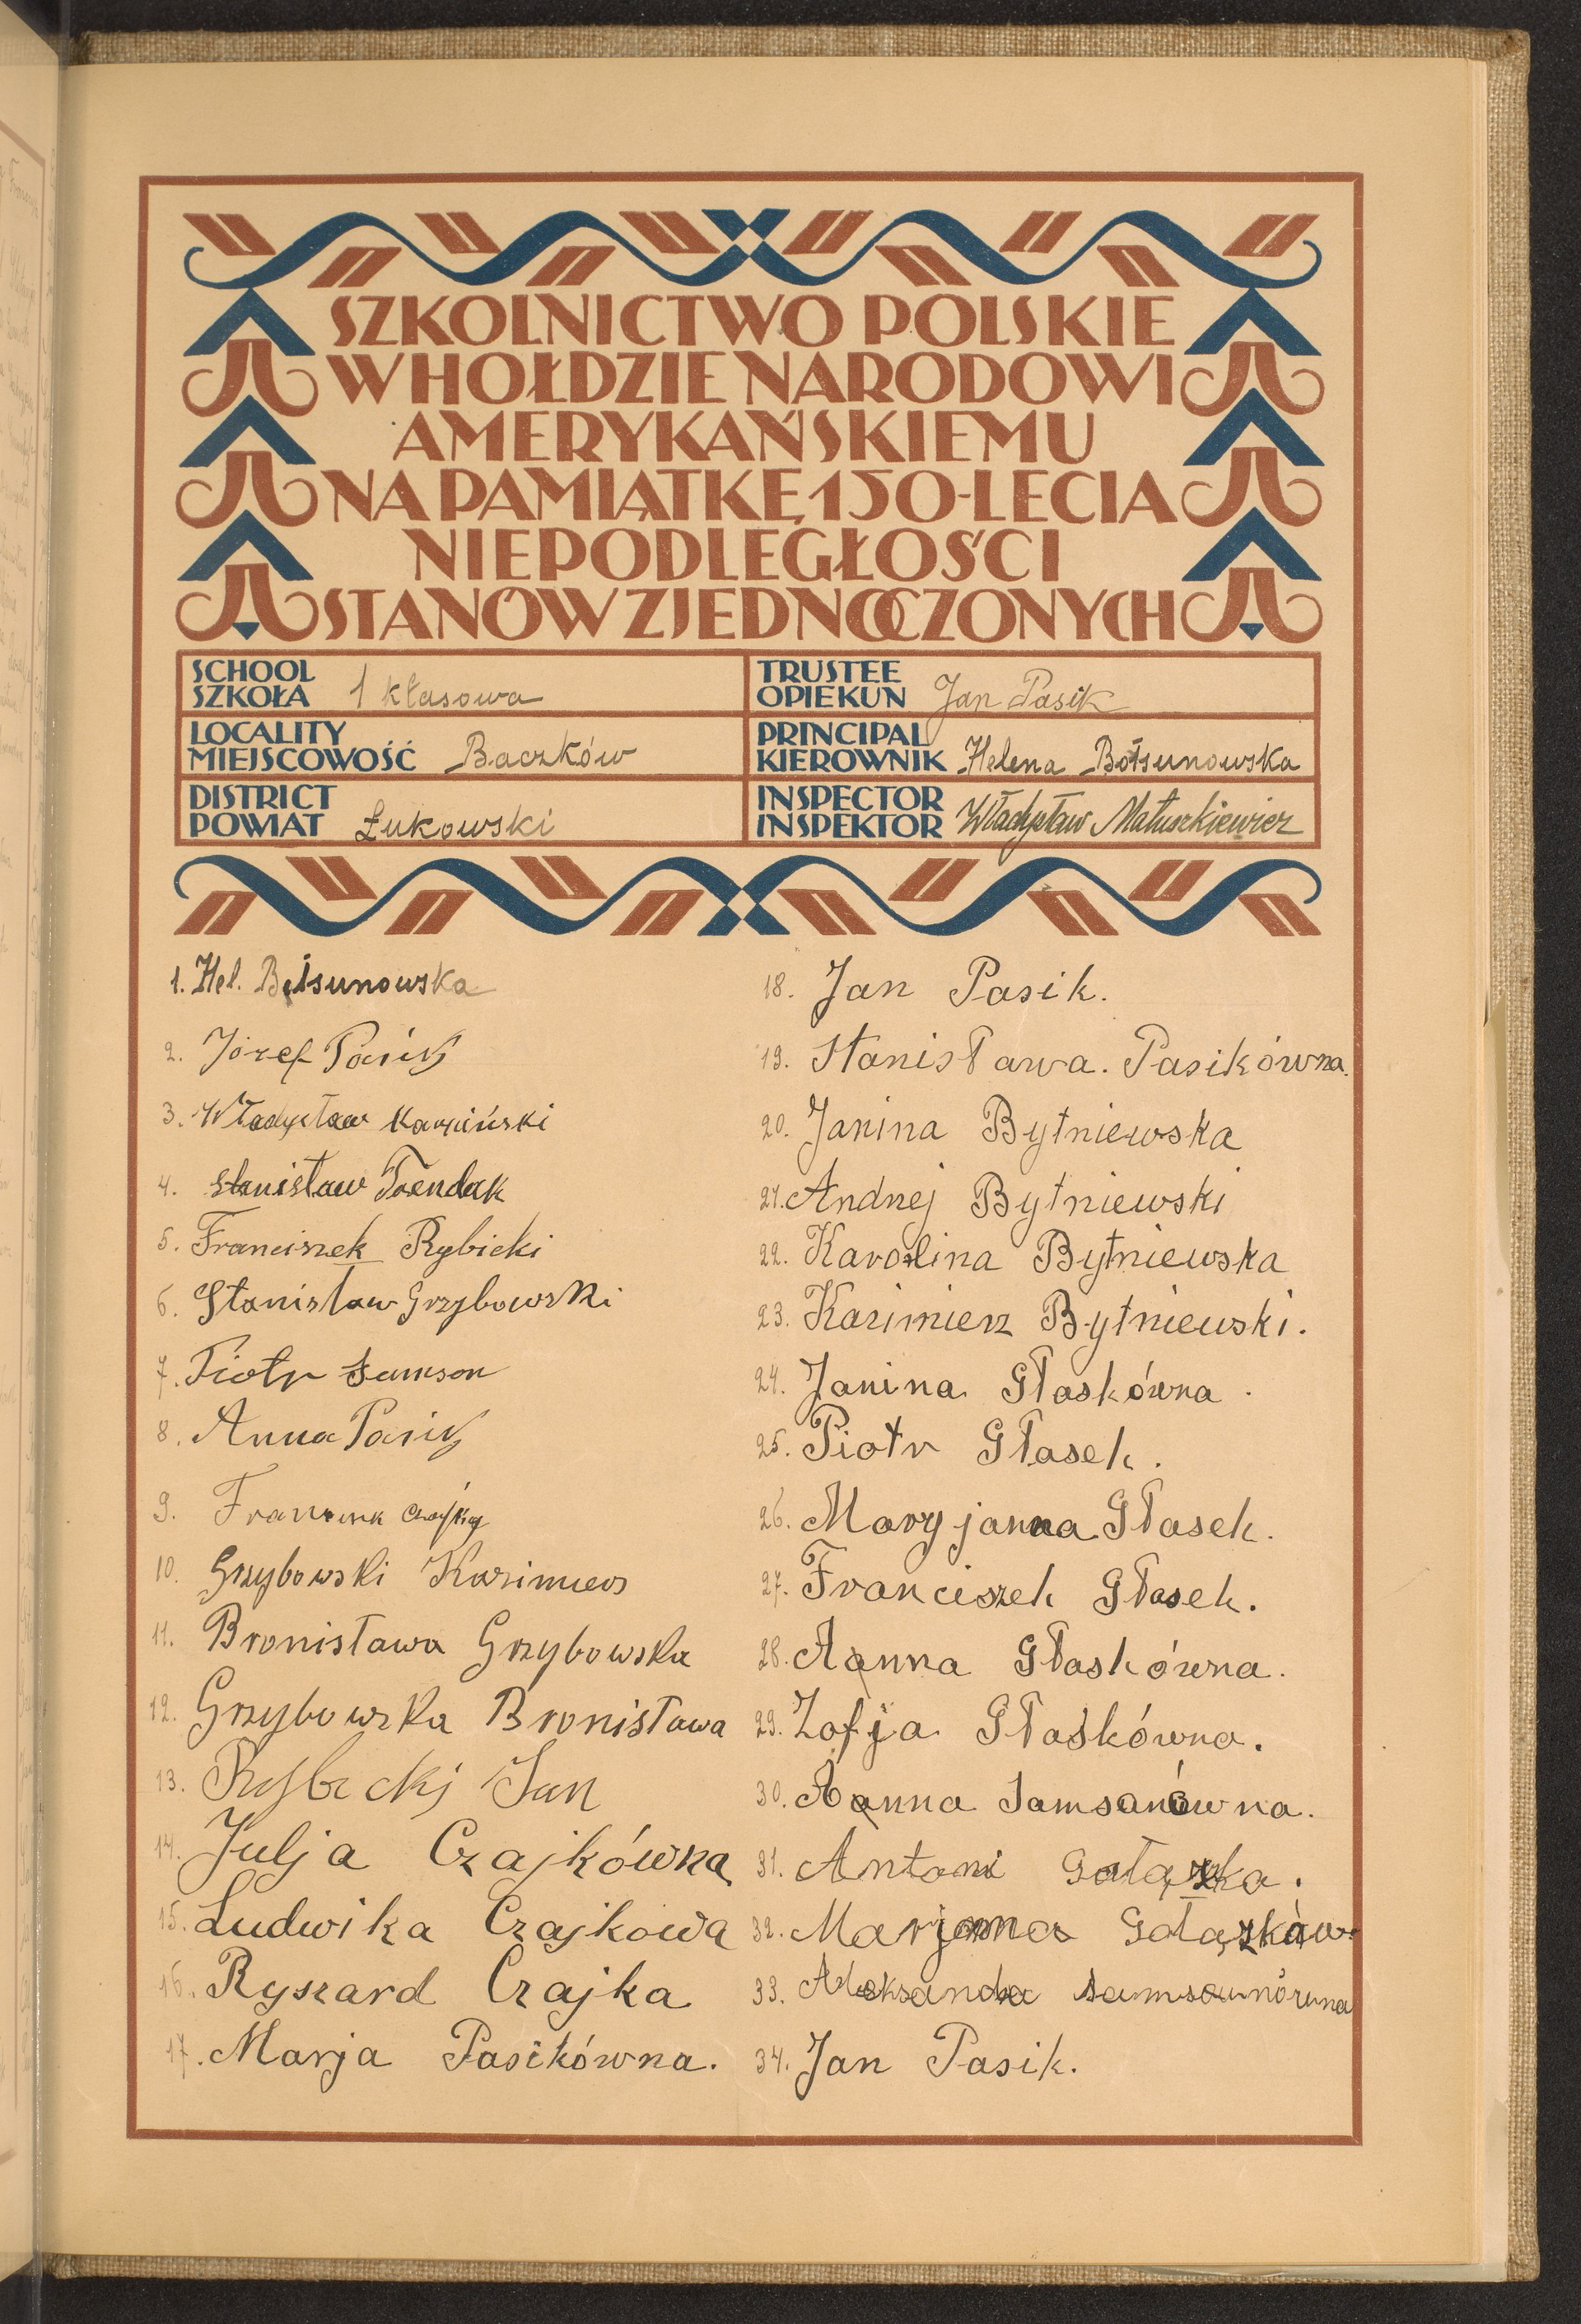 SZKOLNICTWO POLSKIE
W HOŁDZIE NARODOWI
AMERYKAŃSKIEMU
NA PAMIĄTKĘ 150-LECIA
NIEPODLEGŁOŚCI
STANÓW ZJEDNOCZONYCH
SCHOOL
SZKOŁA 1 kłasowa
TRUSTEE
OPIEKUN Jan Pasik
LOCALITY
MIEJSCOWOŚĆ Baczków
PRINCIPAL
KIEROWNIK Helena Bołsunowska
DISTRICT
POWIAT Łukowski
INSPECTOR
INSPEKTOR Władysław Matuszkiewicz
1. Hel. Bołsunowska
2. Józef Pasik
3. Władysław Karpiński
4. Stanisław
5. Franciszek Rybicki
6. Stanisław Grzybowski
7. Piotr Samson
8. Anna Pasik
9.
10. Grzybowski Kazimierz
11. Bronisława Grzybowska
12. Grzybowska Bronisława
13. Rybicki Jan
14. Julja Czajkówna
15. Ludwika Czajkowa
16. Ryszard Czajka
17. Marja Pasikówna.
18. Jan Pasik.
19. Stanisława. Pasikówna.
20. Janina Bytniewska
21. Andrzej Bytniewski
22. Karolina Bytniewska
23. Kazimierz Bytniewski.
24. Janina Głaskówna.
25. Piotr Głasek.
26. Maryjanna Głasek.
27. Franciszek Głasek.
28. Anna Głaskówna.
29. Zofja Głaskówna.
30. Anna Samsonówna.
31. Antoni Gałązka.
32. Marjanna
33. Aleksandra
34. Jan Pasik.